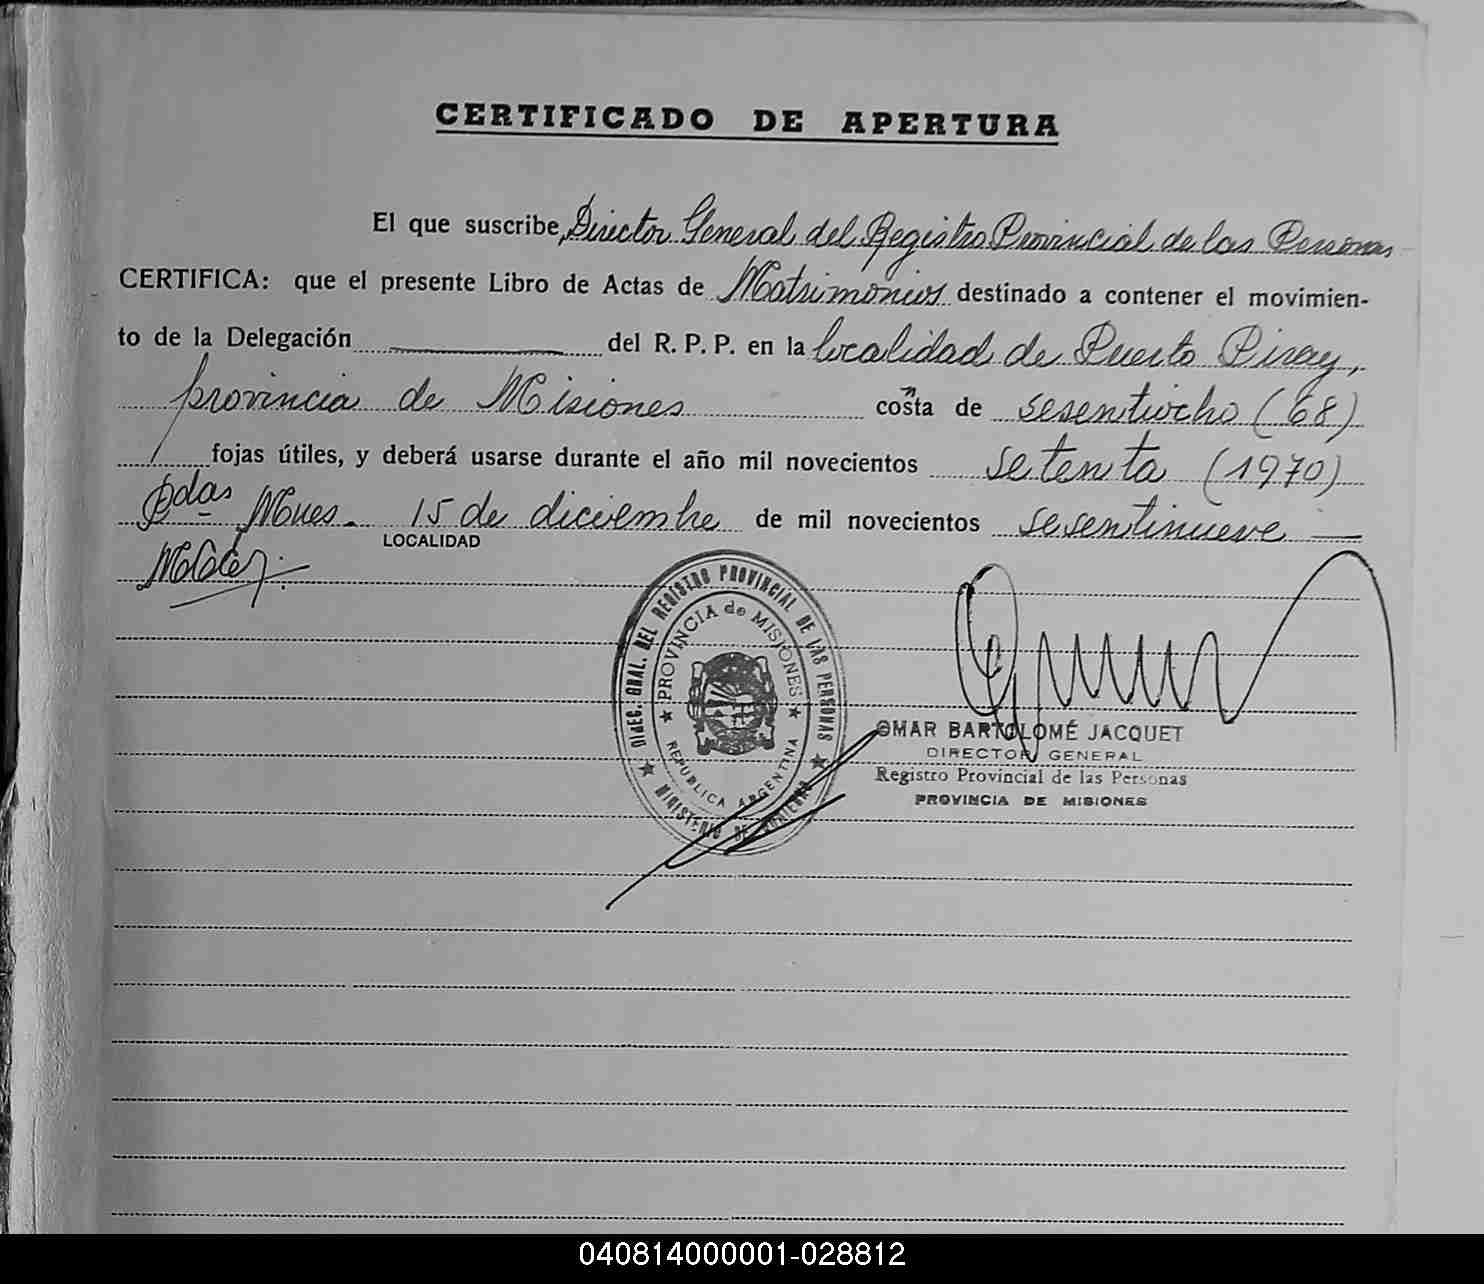 CERTIFICADO DE APERTURA
El que suscribe, Director General del Registro Provincial de las Personas
CERTIFICA: que el presente Libro de Actas de Matrimonios destinado a contener el movimien-
to de la Delegación del R. P. P. en la localidad de Puerto Piray,
provincia de Misiones costa de sesentiocho (68)
fojas útiles, y deberá usarse durante el año mil novecientos setenta (1970)
Pdas Mnes. 15 de diciembre de mil novecientos sesentinueve
LOCALIDAD
DIREC. GRAL. DEL REGISTRO PROVINCIAL DE LAS PERSONAS
MINISTERIO DE GOBIERNO
PROVINCIA de MISIONES
REPUBLICA ARGENTINA
OMAR BARTOLOMÉ JACQUET
DIRECTOR GENERAL
Registro Provincial de las Personas
PROVINCIA DE MISIONES
040814000001-028812